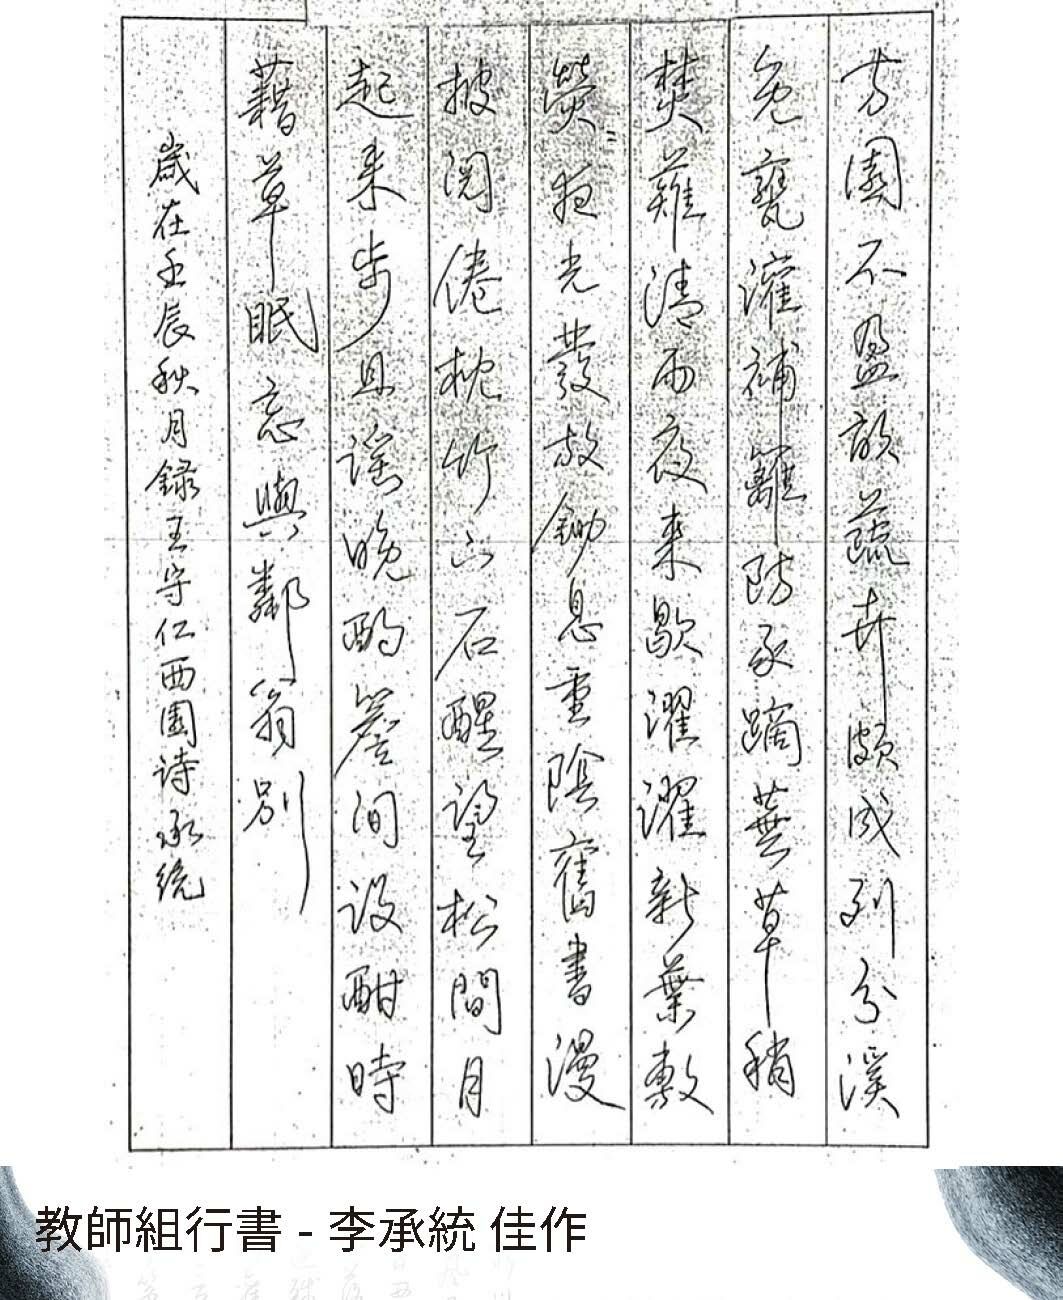 方園不盈畝蔬卉頗成列分溪
免甕灌補籬防豕蹢蕪草稍
焚薙清雨夜來歇濯濯新葉敷
熒熒夜光發放鋤息重陰舊書漫
披閱倦枕竹下石醒望松間月
起來步且謠晚酌簷間設酣時
藉草眠忘與鄰翁別
歲在壬辰秋月錄王守仁西園詩承統
教師組行書 - 李承統 佳作